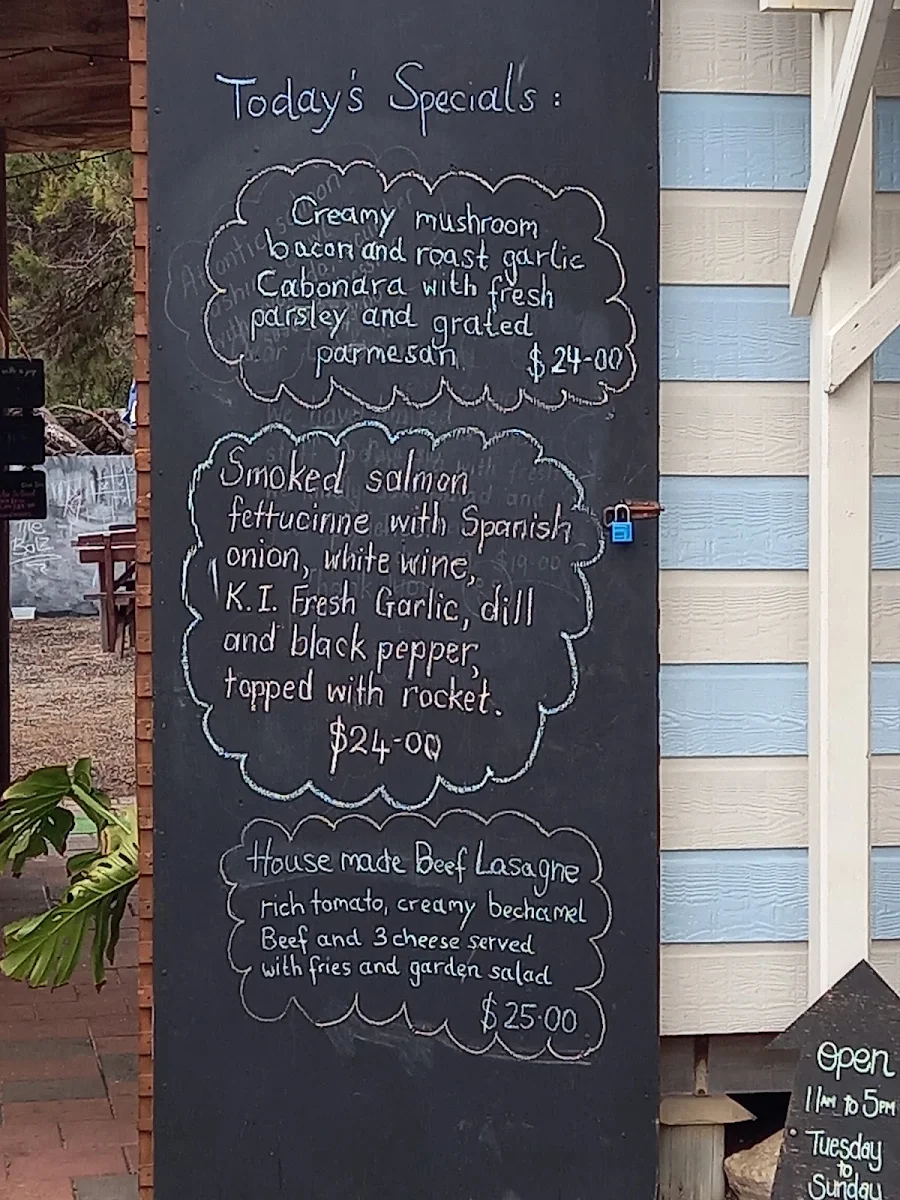 Today's Specials :
Creamy mushroom
bacon and roast garlic
Cabonara with fresh
parsley and grated
parmesan $24-00
Smoked salmon
fettucinne with Spanish
onion, white wine,
K.I. Fresh Garlic, dill
and black pepper,
topped with rocket.
$24-00
House made Beef Lasagne
rich tomato, creamy bechamel
Beef and 3 cheese served
with fries and garden salad
$25.00
Open
11AM to 5PM
Tuesday
to
Sunday